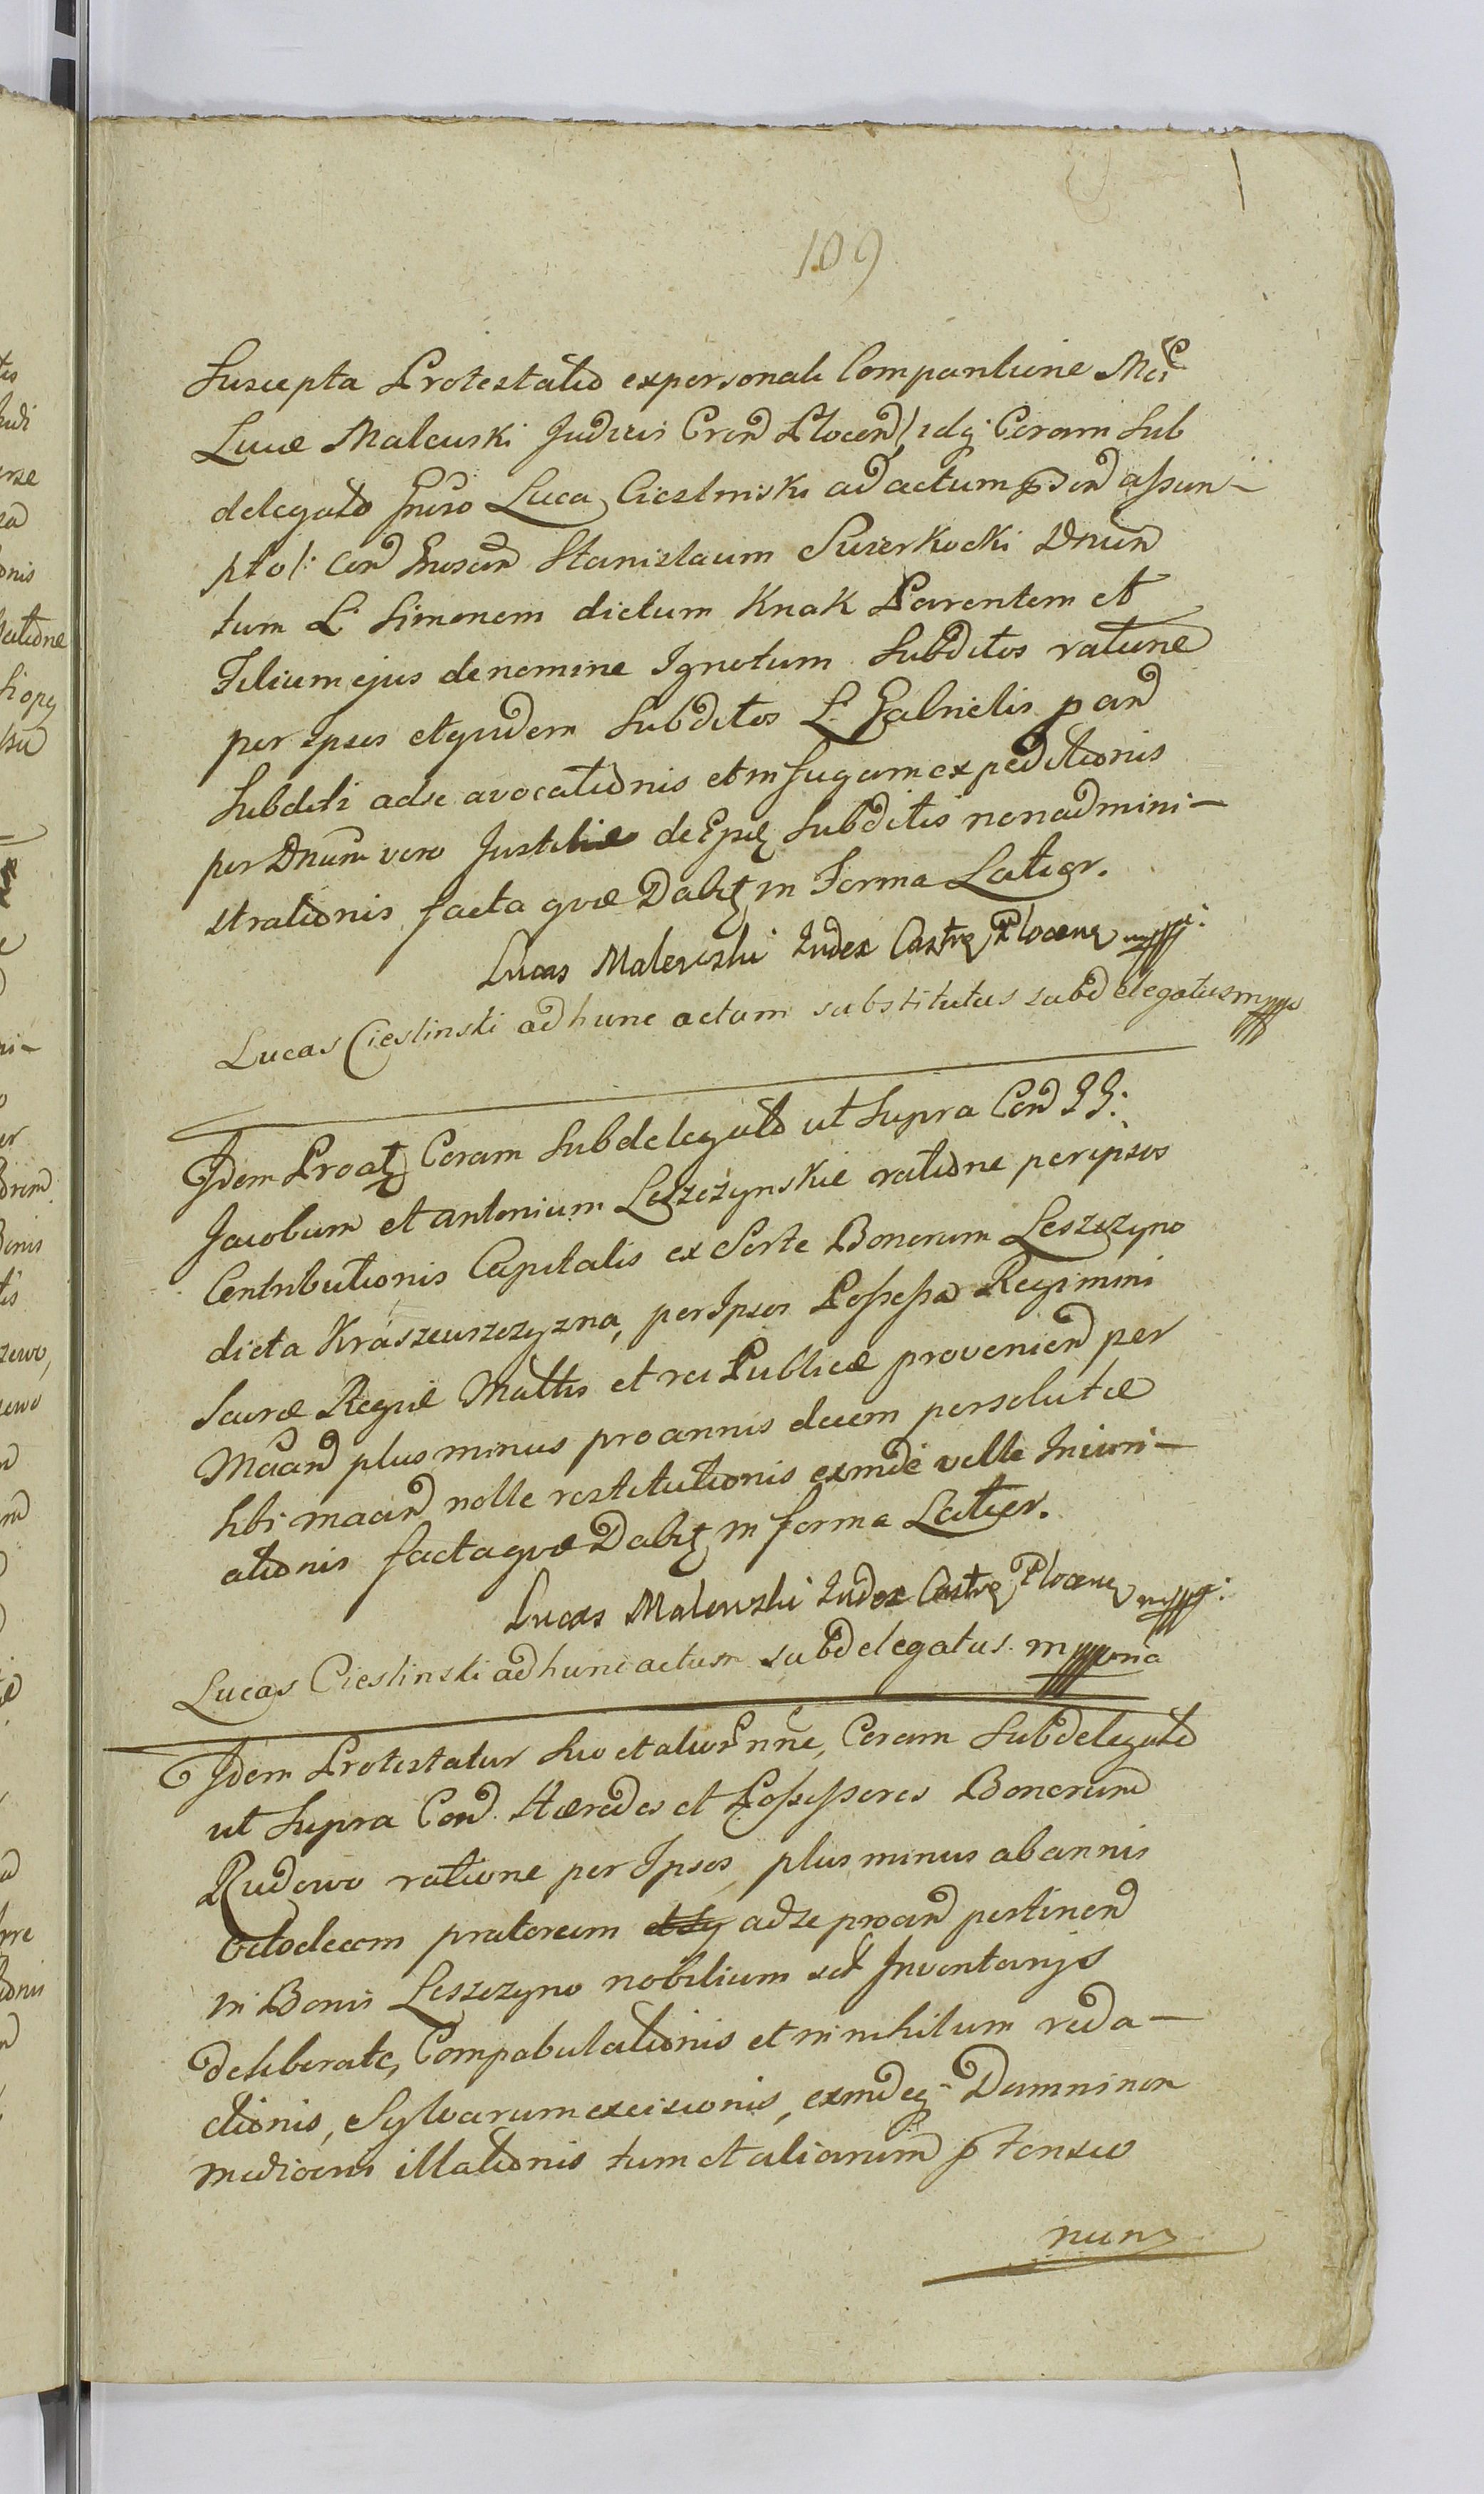 109
Suscepta Protestatio ex personali Compantione Mci
Lucæ Maleuski Judicis Cren Plocen /: idq Coram Sub
delegato Gnroso Luca Cieslinski ad actum pnsen assum-
pto /: Con Gnrosum Stanislaum Suierkocki Dnum
tum L. Simonem dictum Knak Parentem et
Filium ejus de nomine Ignotum Subditos ratione
per ipsos et quidem Subditos L. Gabrielis pan
Subditi ad se avocationis et in fugam expeditionis
per Dnum vero Justitiæ de Ipsis Subditis non admini-
strationis facta quæ Dabit in Forma Latior.
Lucas Malewski Iudex Castr Plocens mpp:
Lucas Cieslinski ad hunc actum substitutus subdelegatus mpp
Idem Proat Coram Subdelegato ut Supra Con GG:
Jacobum et Antonium Leszczynskie ratione per ipsos
Contributionis Capitalis ex Sorte Bonorum Leszczyno
dicta Kraszewszczyzna, per Ipsos Possessa Regimini
Sacræ Regiæ Mattis et rei Publicæ provenien per
Maan plus minus pro annis decem persolutæ
sibi maan nolle restitutionis exinde velle Iniuri-
ationis facta quæ Dabit in forma Latior.
Lucas Malewski Iudex Castr Plocens mpp:
Lucas Cieslinski ad hunc actum subdelegatus mppria
Idem Protestatur Suo et alior nne, Coram Subdelegato
ut Supra Con Hæredes et Possessores Bonorum
Rudowo ratione per Ipsos plus minus ab annis
Octodecem pratorum ad se proan pertinen
in Bonis Leszczyno nobilium sed Inventarijs
deliberate, Compabulationis et in nihilum reda-
ctionis, Sylvarum excisionis, exindeq Damni non
mediocris illationis tum et aliarum ptensio
num